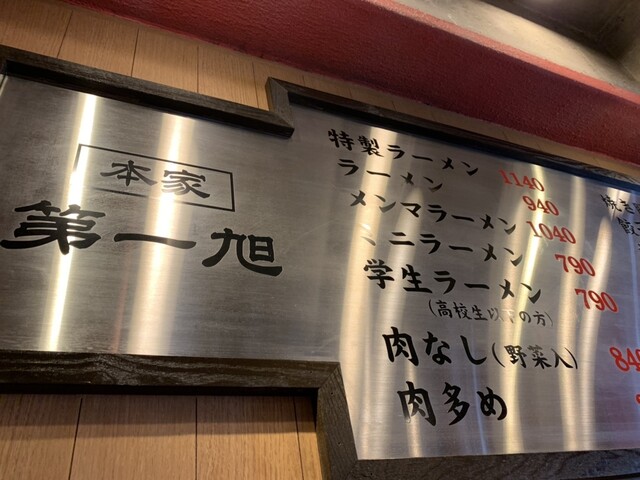 本家
第一旭
特製ラーメン 1140
ラーメン 940
メンマラーメン 1040
ミニラーメン 790
学生ラーメン 790
(高校生以下の方)
肉なし(野菜入) 840
肉多め